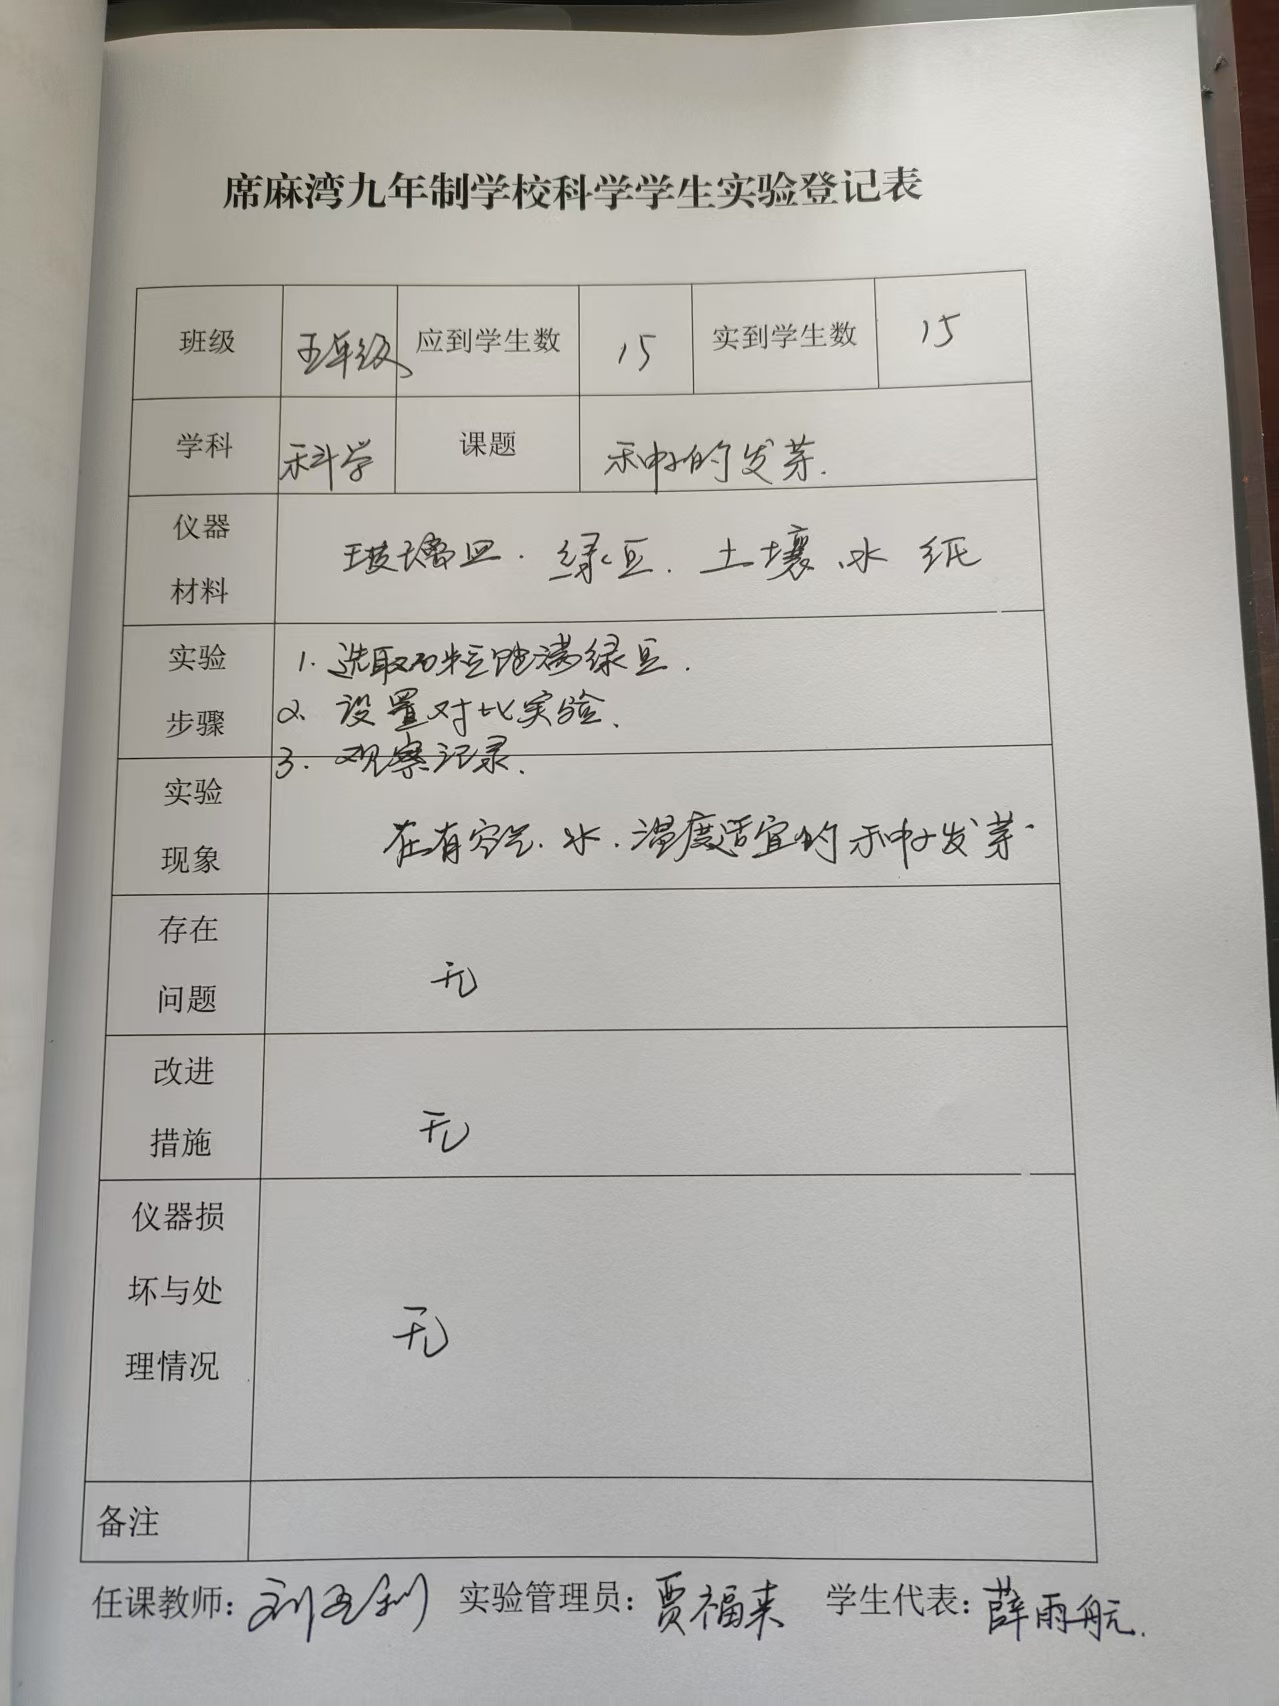 席麻湾九年制学校科学学生实验登记表
班级 五年级 应到学生数 15 实到学生数 15
学科 科学 课题 种子的发芽.
仪器
材料
玻璃皿. 绿豆. 土壤、水 纸
实验
步骤
1. 选取 粒饱满绿豆.
2. 设置对比实验.
3. 观察记录.
实验
现象
在有空气. 水. 温度适宜的种子发芽.
存在
问题
无
改进
措施
无
仪器损
坏与处
理情况
无
备注
任课教师: 刘 利 实验管理员: 贾福来 学生代表: 薛雨航.